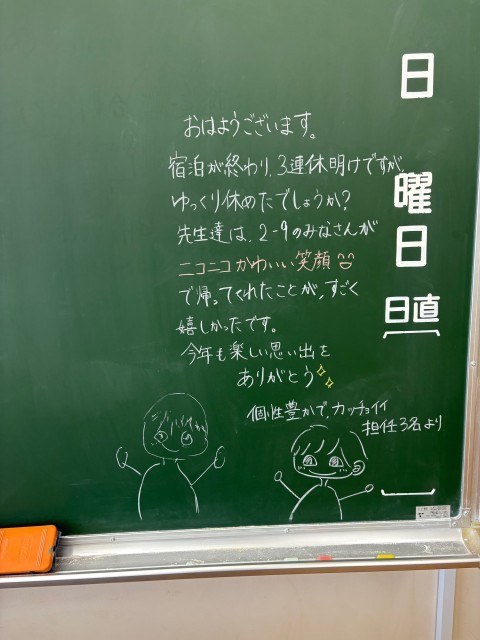 おはようございます。
宿泊が終わり、3連休明けですが、
ゆっくり休めたでしょうか?
先生達は、2-9のみなさんが
ニコニコかわいい笑顔
で帰ってくれたことが、すごく
嬉しかったです。
今年も楽しい思い出を
ありがとう
個性豊かで、カッチョイイ
担任3名より
日
曜日
日直